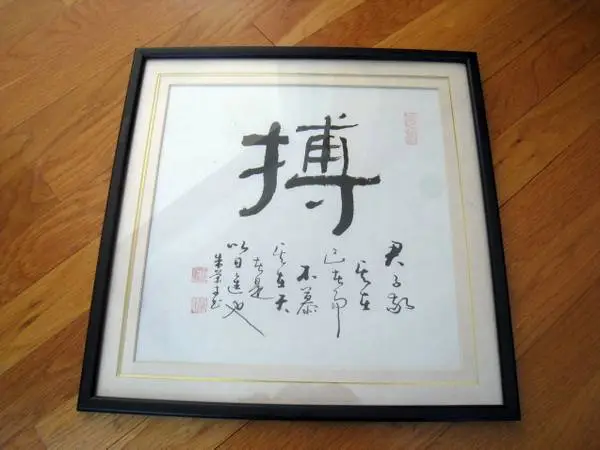 搏
君子敬
其在
己者而
不慕
其在天
者是
以日進也